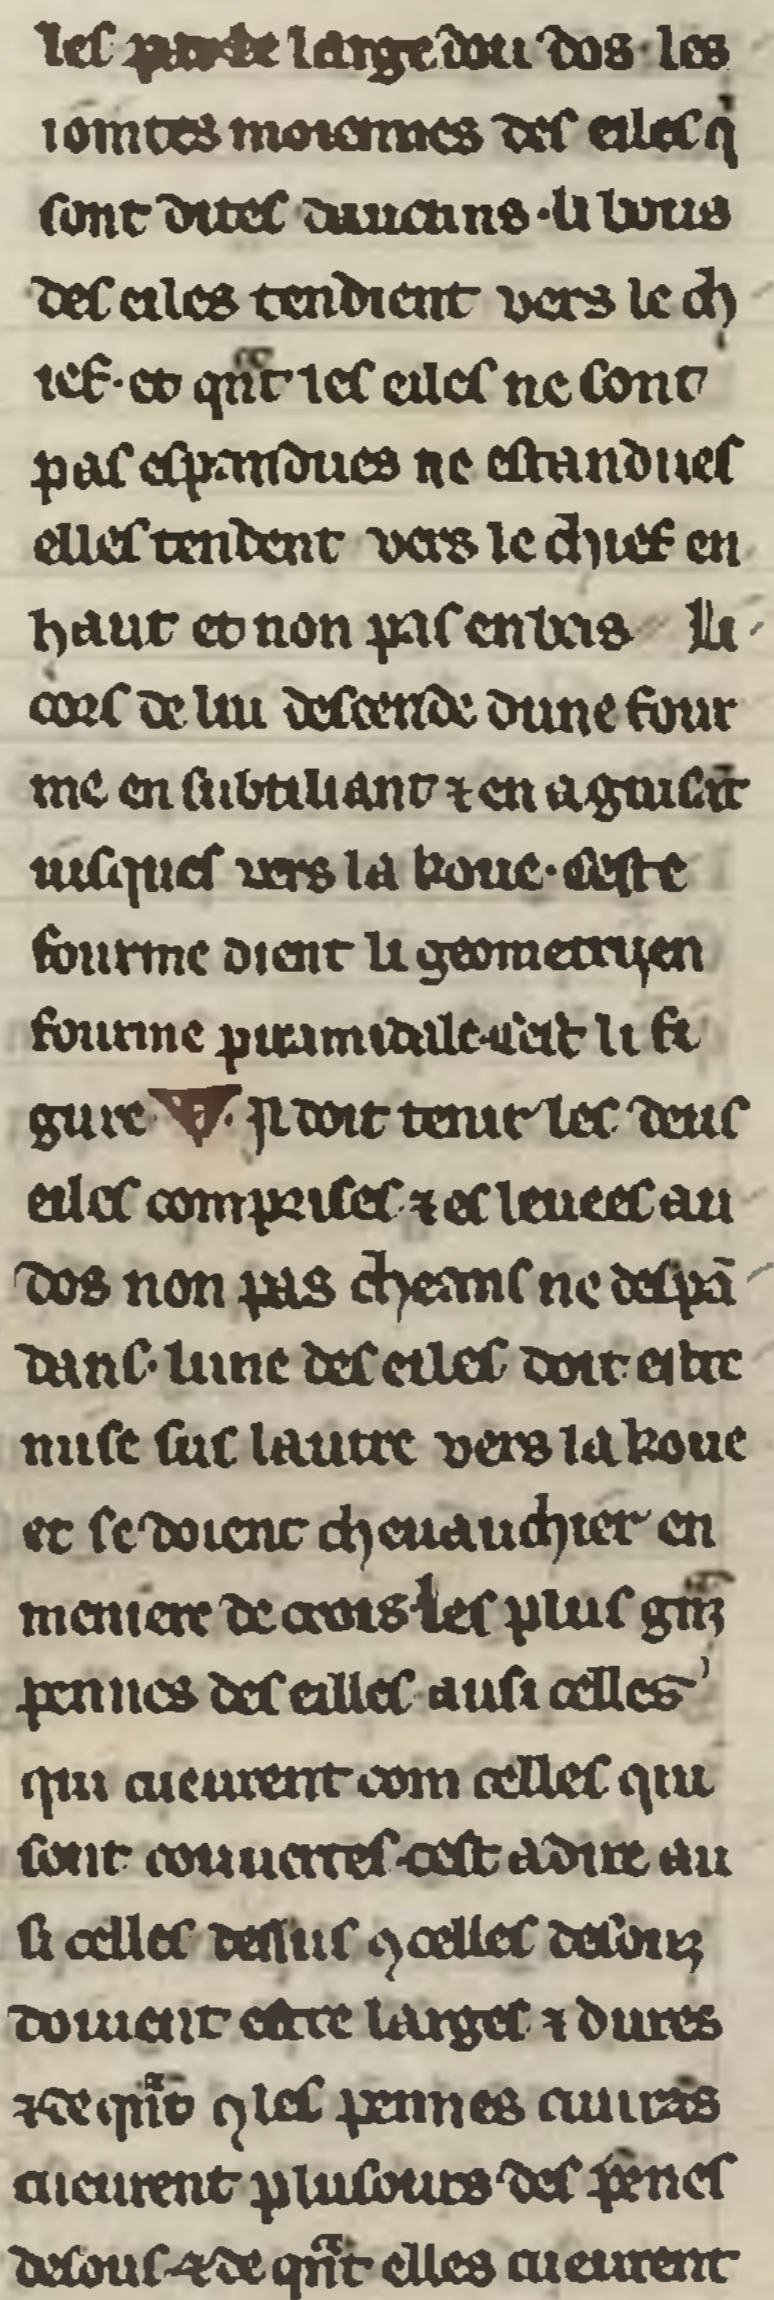 les par de large dou dos · les
iointes moiennes des eiles q̇
sont dites daucuns · li bous
des eiles tendient vers le ch
ief · et qᷓnt les eiles ne sont
pas espandues ne estandues
elles tendent vers le chief en
haut et non pas en bas Li
cors de lui descende dune four
me en subtiliant ⁊ en aguisāt
iusques vers la koue · Ceste
fourme dient li geometryen
fourme piramidale · cest li fi
gure · Il doit tenir les deus
eiles comprises ⁊ esleuees au
dos non pas cheans ne despā
dans · lune des eiles doit estre
mise sus lautre vers la koue
et se doient cheuauchier en
meniere de crois · les plus gᷓnz
pennes des eilles ausi celles
qui cueurent com celles qui
sont couuertes · cest a dire au
si celles dessus ꝯ celles desouz
doiuent estre larges ⁊ dures
⁊ de qᷓnt ꝯ les pennes cuurās
cueurent plusours des pēnes
desous ⁊ de qᷓnt elles cueurent